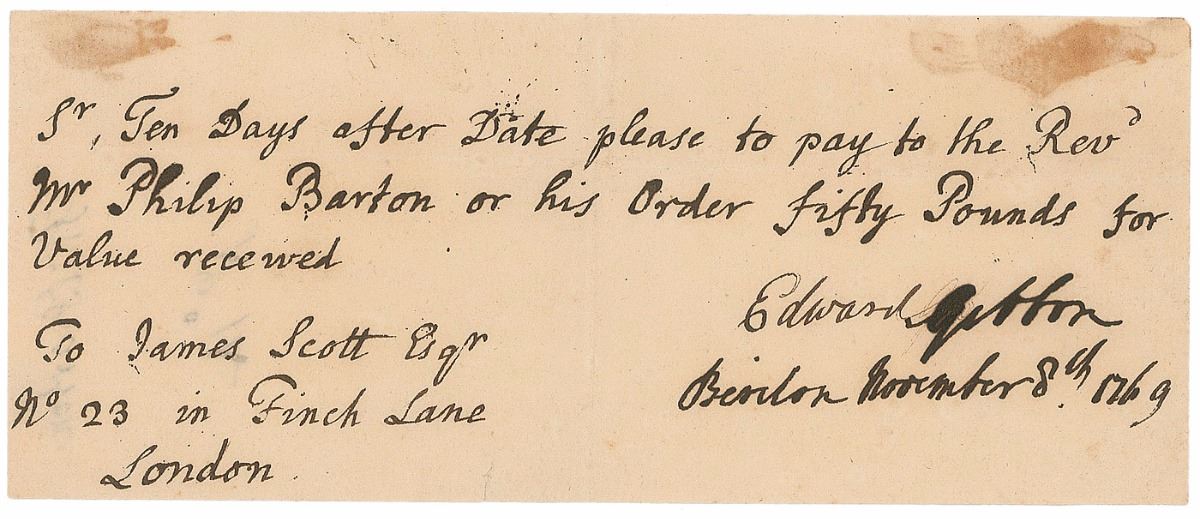 Sr, Ten Days after Date please to pay to the Revd
Mr Philip Barton or his Order fifty Pounds for
Value received
Edward Gibbon
Beriton November 8th. 1769
To James Scott Esqr
No 23 in Finch Lane
London